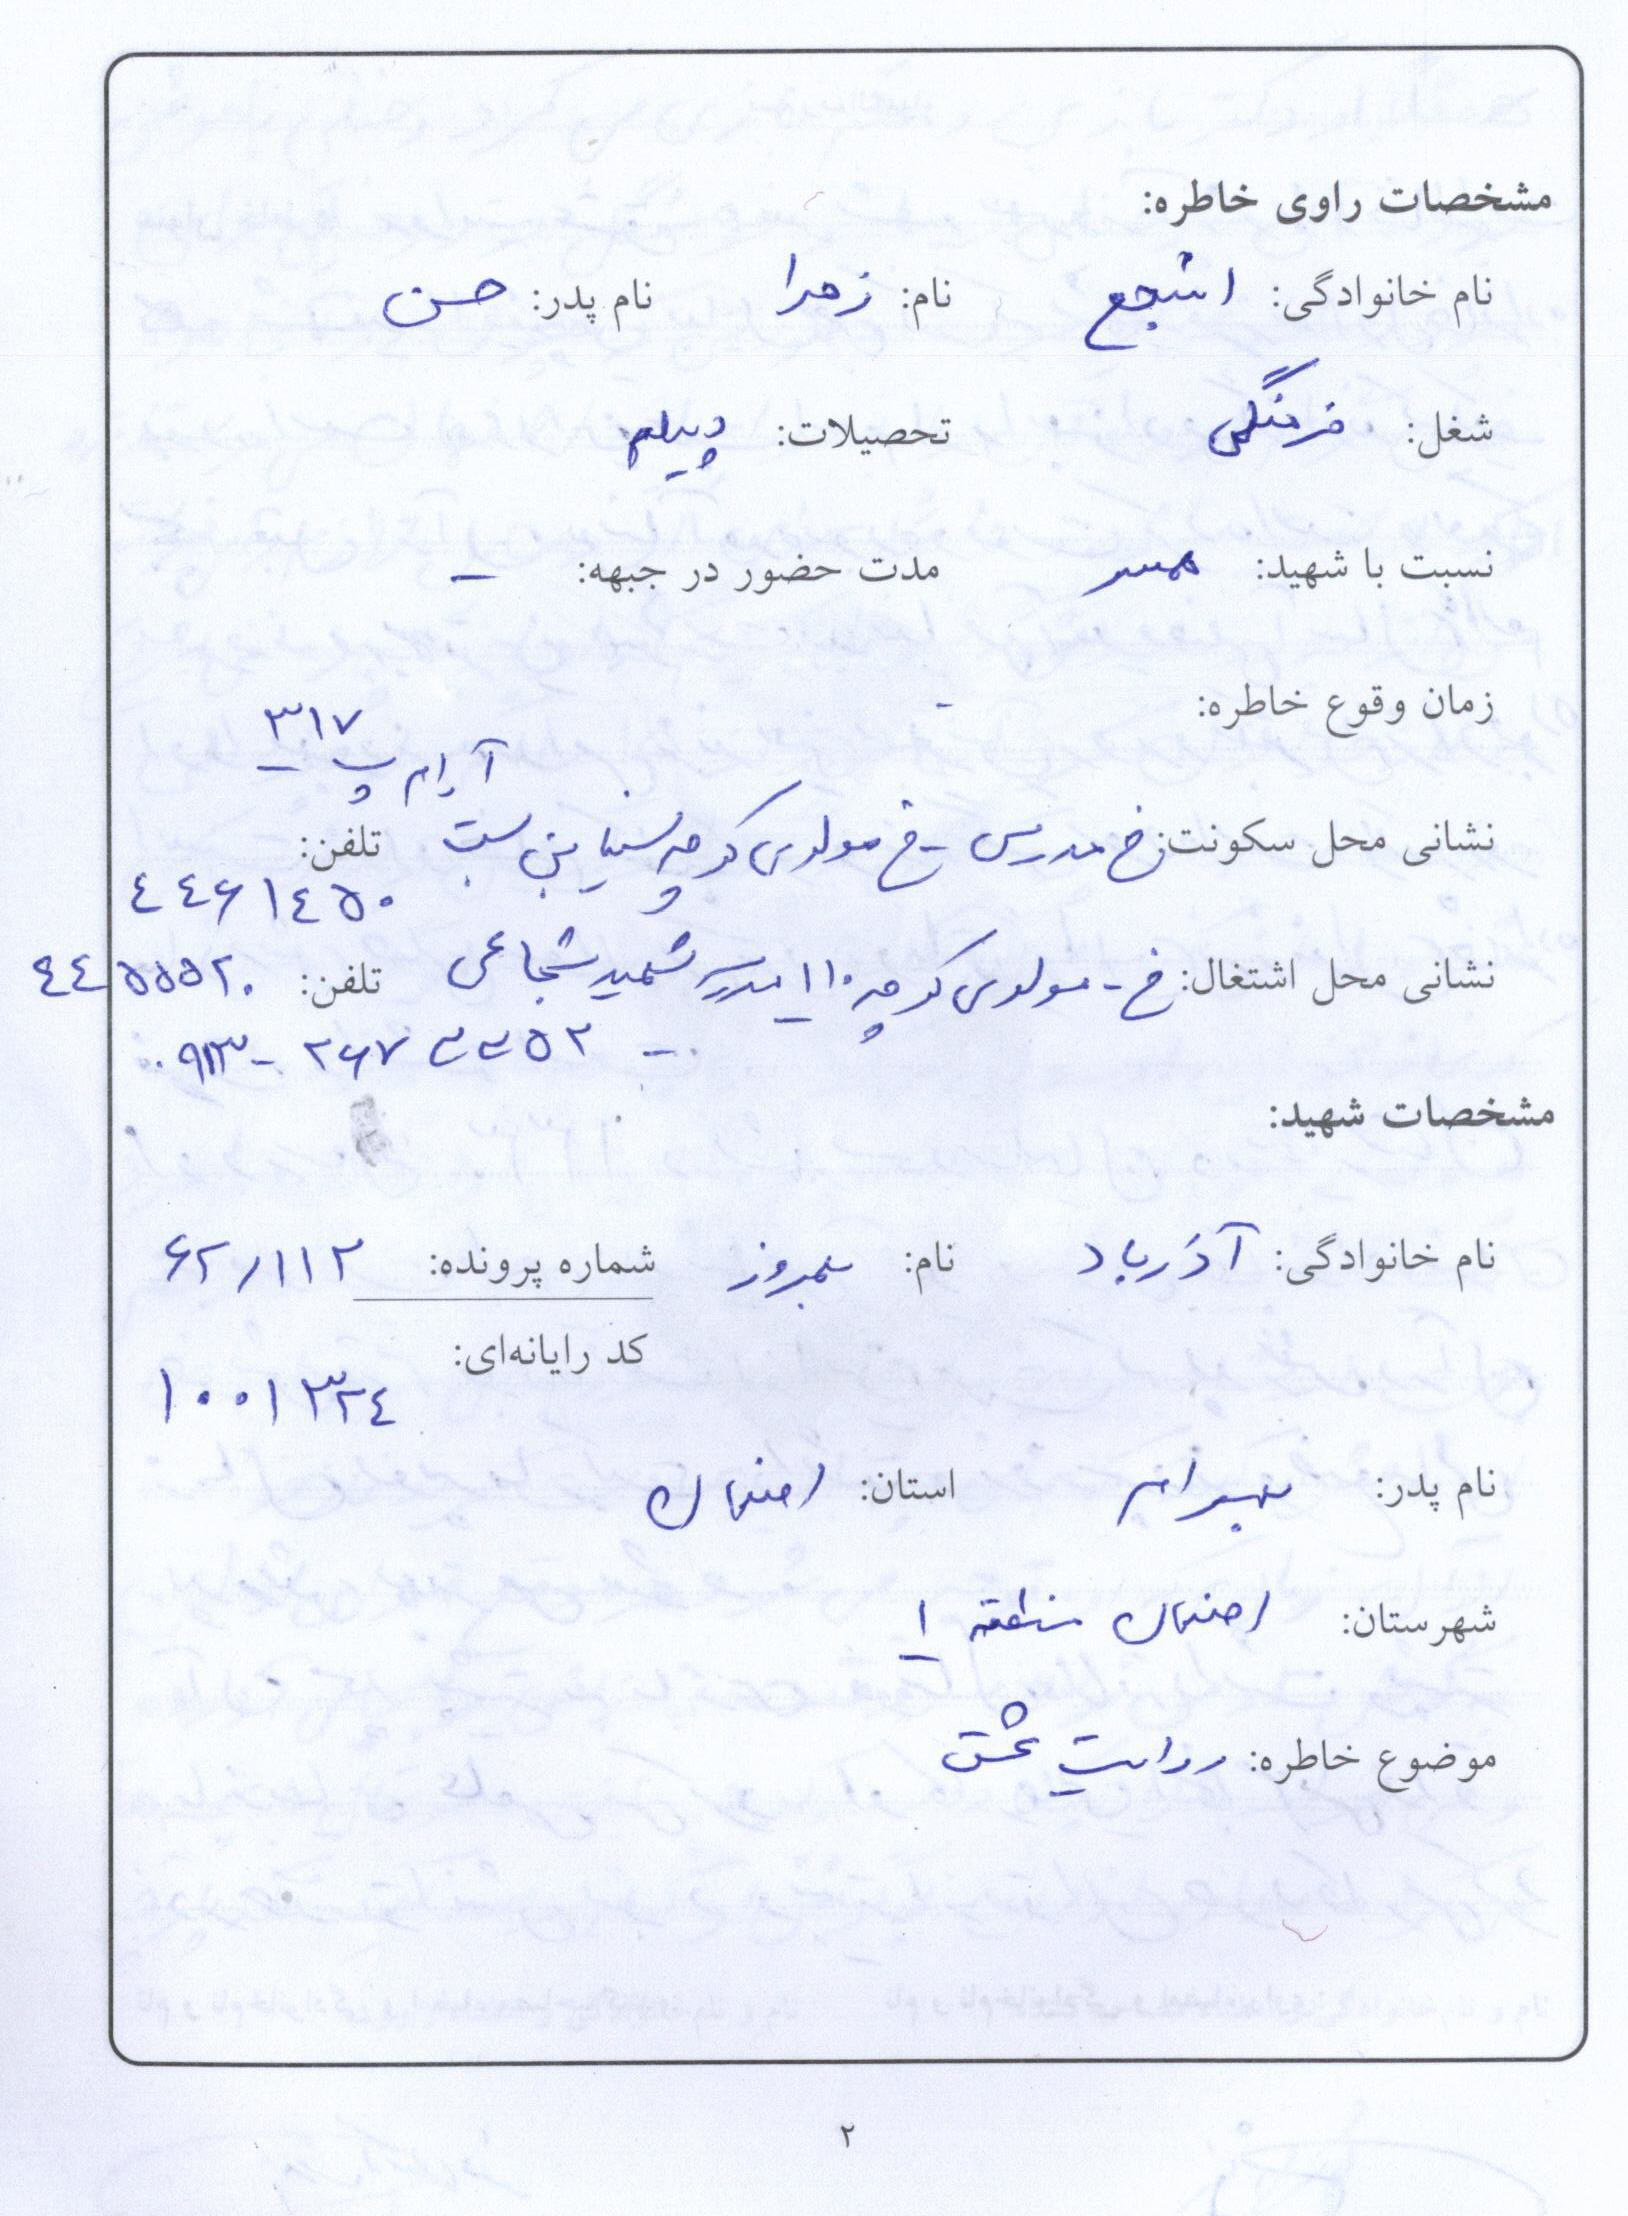 مشخصات راوی خاطره:
نام خانوادگی: اشجع نام: زهرا نام پدر: حسن
شغل: فرهنگی تحصیلات: دیپلم
نسبت با شهید: همسر مدت حضور در جبهه: -
زمان وقوع خاطره: -
نشانی محل سکونت: خ مدرس - خ مولوی کوچه سینا بن بست آرام پ ۳۱۷ تلفن:
۴۴۶۱۴۵۰
نشانی محل اشتغال: خ - مولوی کوچه ۱۱۰ شهید شجاعی تلفن: ۴۴۵۵۵۲۰
۰۹۱۳ - ۲۶۷ ۳۳۵۲
مشخصات شهید:
نام خانوادگی: آذرباد نام: بهروز شماره پرونده: ۶۲/۱۱۲
کد رایانه‌ای:
۱۰۰۱۳۲۴
نام پدر: بهرام استان: اصفهان
شهرستان: اصفهان منطقه ۱
موضوع خاطره: روایت عشق
۲